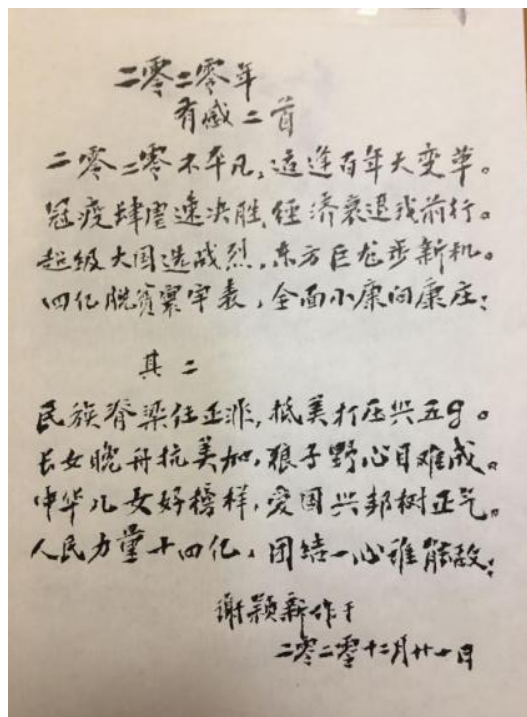 二零二零年
有感二首
二零二零不平凡,适逢百年大变革。
冠疫肆虐速决胜,经济衰退我前行。
超级大国选战烈,东方巨龙步新机。
四亿脱贫寰宇表,全面小康向康庄;
其二
民族脊梁任正非,抵美打压兴五g。
长女晚舟抗美加,狼子野心目难成。
中华儿女好榜样,爱国兴邦树正气。
人民力量十四亿,团结一心谁能敌;
谢颖新作于
二零二零十二月廿一日